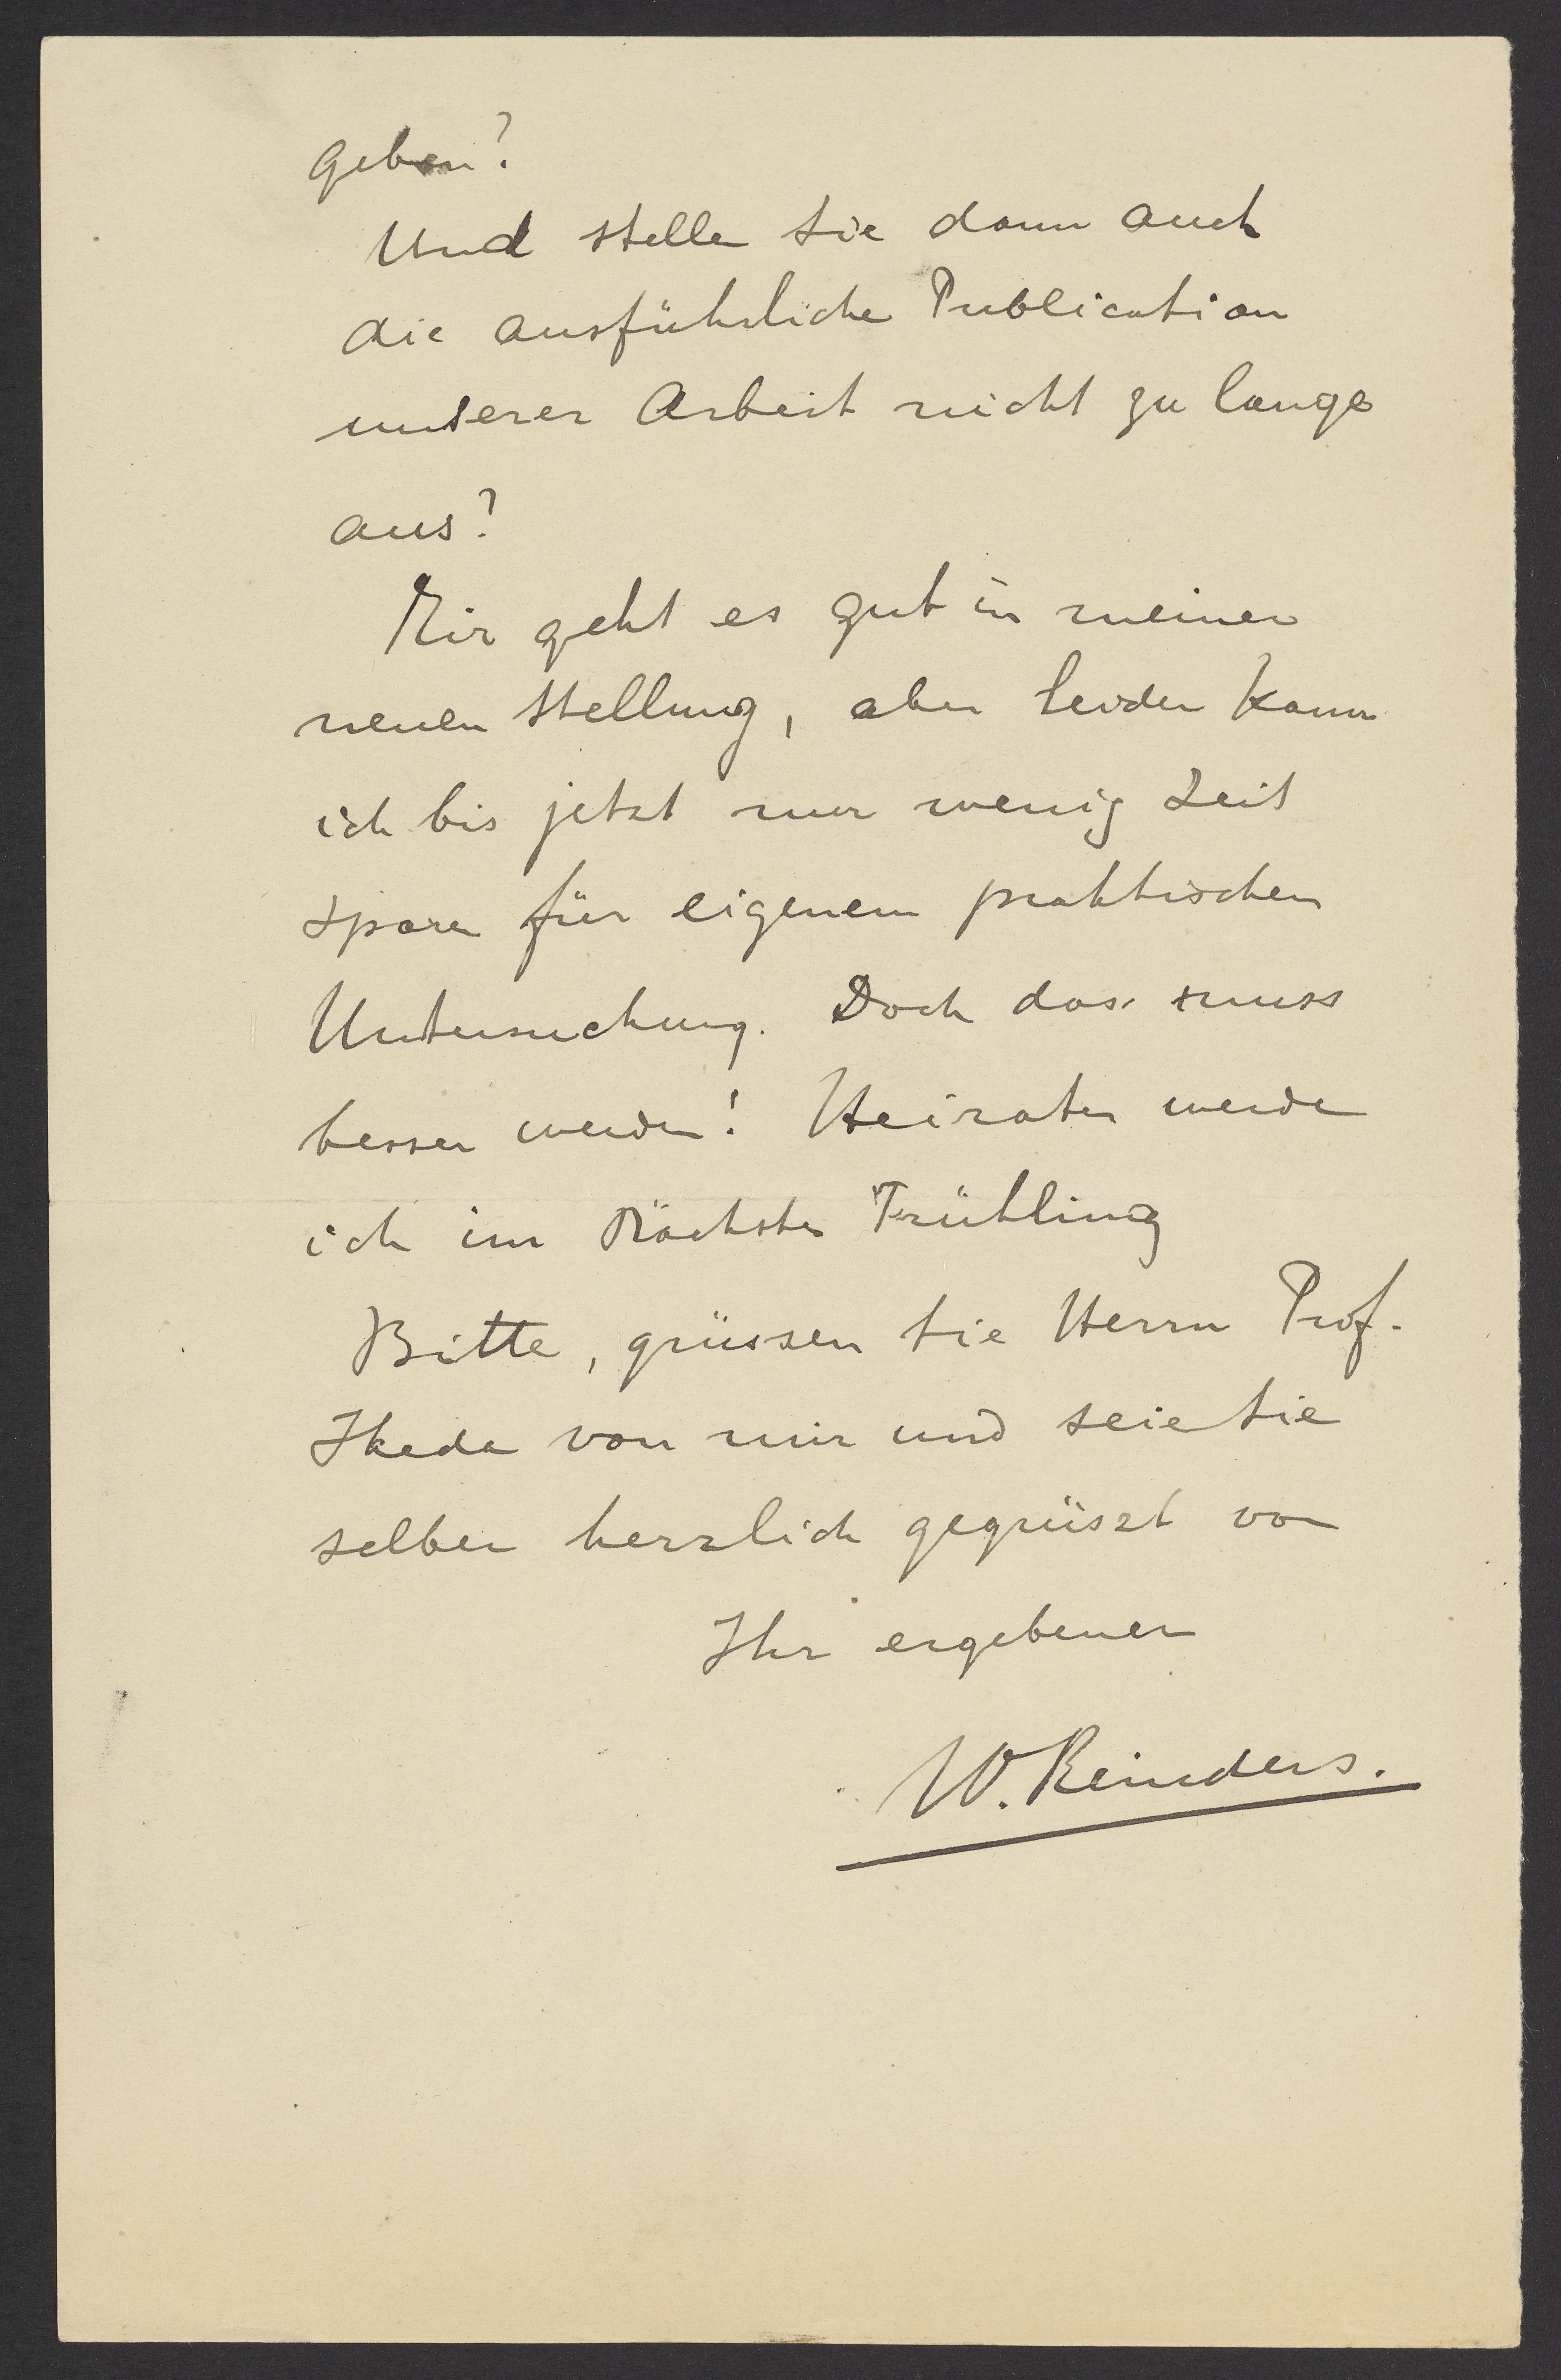 geben?
Und stellen Sie dann auch
die ausführliche Publication
unserer Arbeit nicht zu lange
aus?
Mir geht es gut in meiner
neuen Stellung, aber leider kann
ich bis jetzt nur wenig Zeit
sparen für eigenem praktischen
Untersuchung. Doch das muss
besser werden! Heiraten werde
ich im nächsten Frühling
Bitte, grüssen Sie Herrn Prof.
Ikeda von mir und seie Sie
selber herzlich gegrüszt von
Ihr ergebener
W. Reinders.